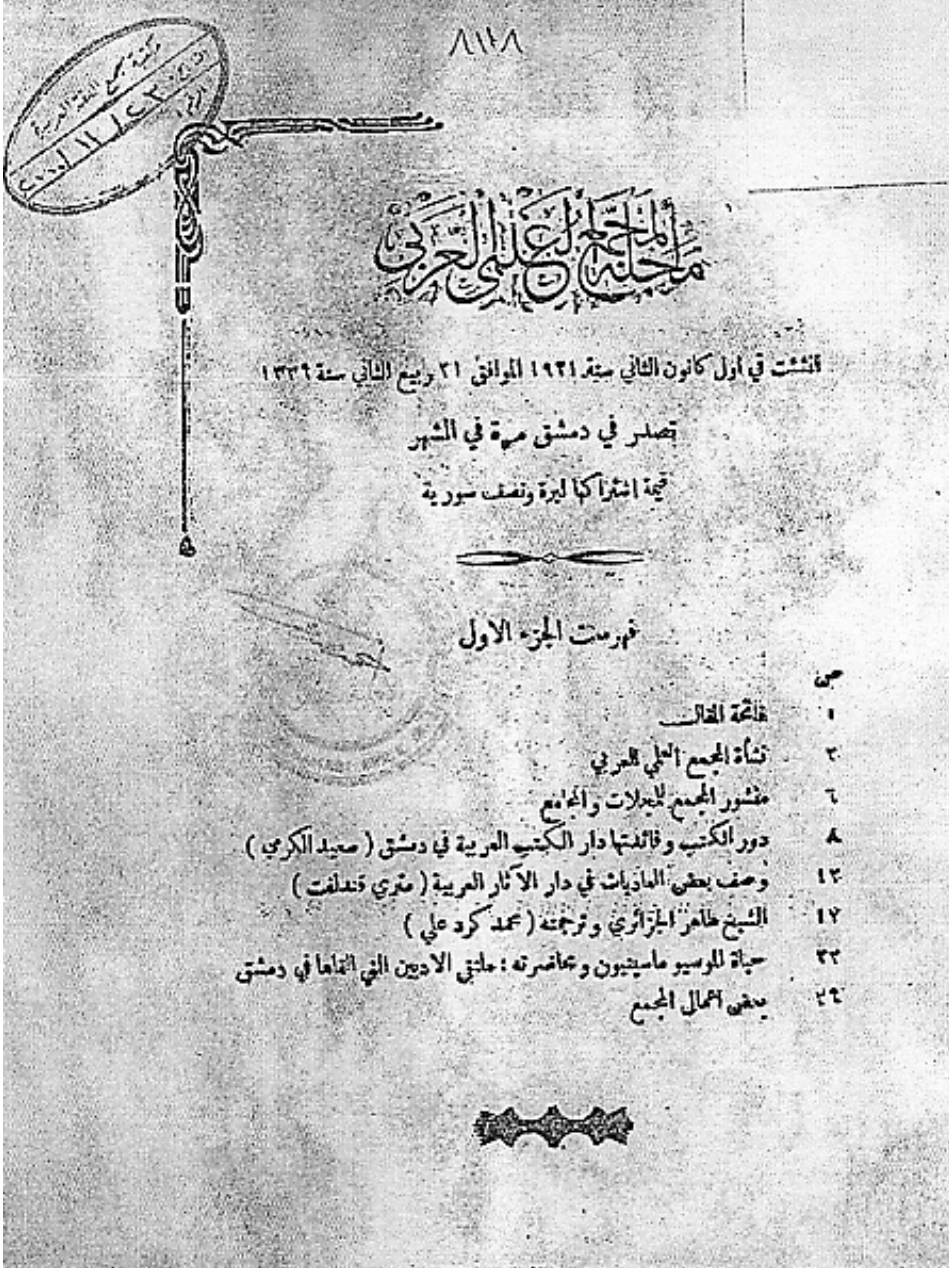 ٨١٢٨
مكتبة مجمع اللغة العربية
مجلة المجمع العلمي العربي
أنشئت في أول كانون الثاني سنة ١٩٢١ الموافق ٢١ ربيع الثاني سنة ١٣٣٩
تصدر في دمشق مرة في الشهر
قيمة اشتراكها ليرة ونصف سورية
فهرست الجزء الاول
ص
١ فاتحة المقال
٢ نشأة المجمع العلمي العربي
٦ منشور المجمع للمجلات والمجامع
٨ دور الكتب وفائدتها دار الكتب العربية في دمشق ( سعيد الكرمي )
١٢ وصف بعض العاديات في دار الآثار العربية ( متري قندلفت )
١٧ الشيخ طاهر الجزائري وترجمته ( محمد كرد علي )
٢٢ حياة الموسيو ماسينيون ومحاضرته : ملتقى الاديين التي القاها في دمشق
٢٩ بعض اعمال المجمع